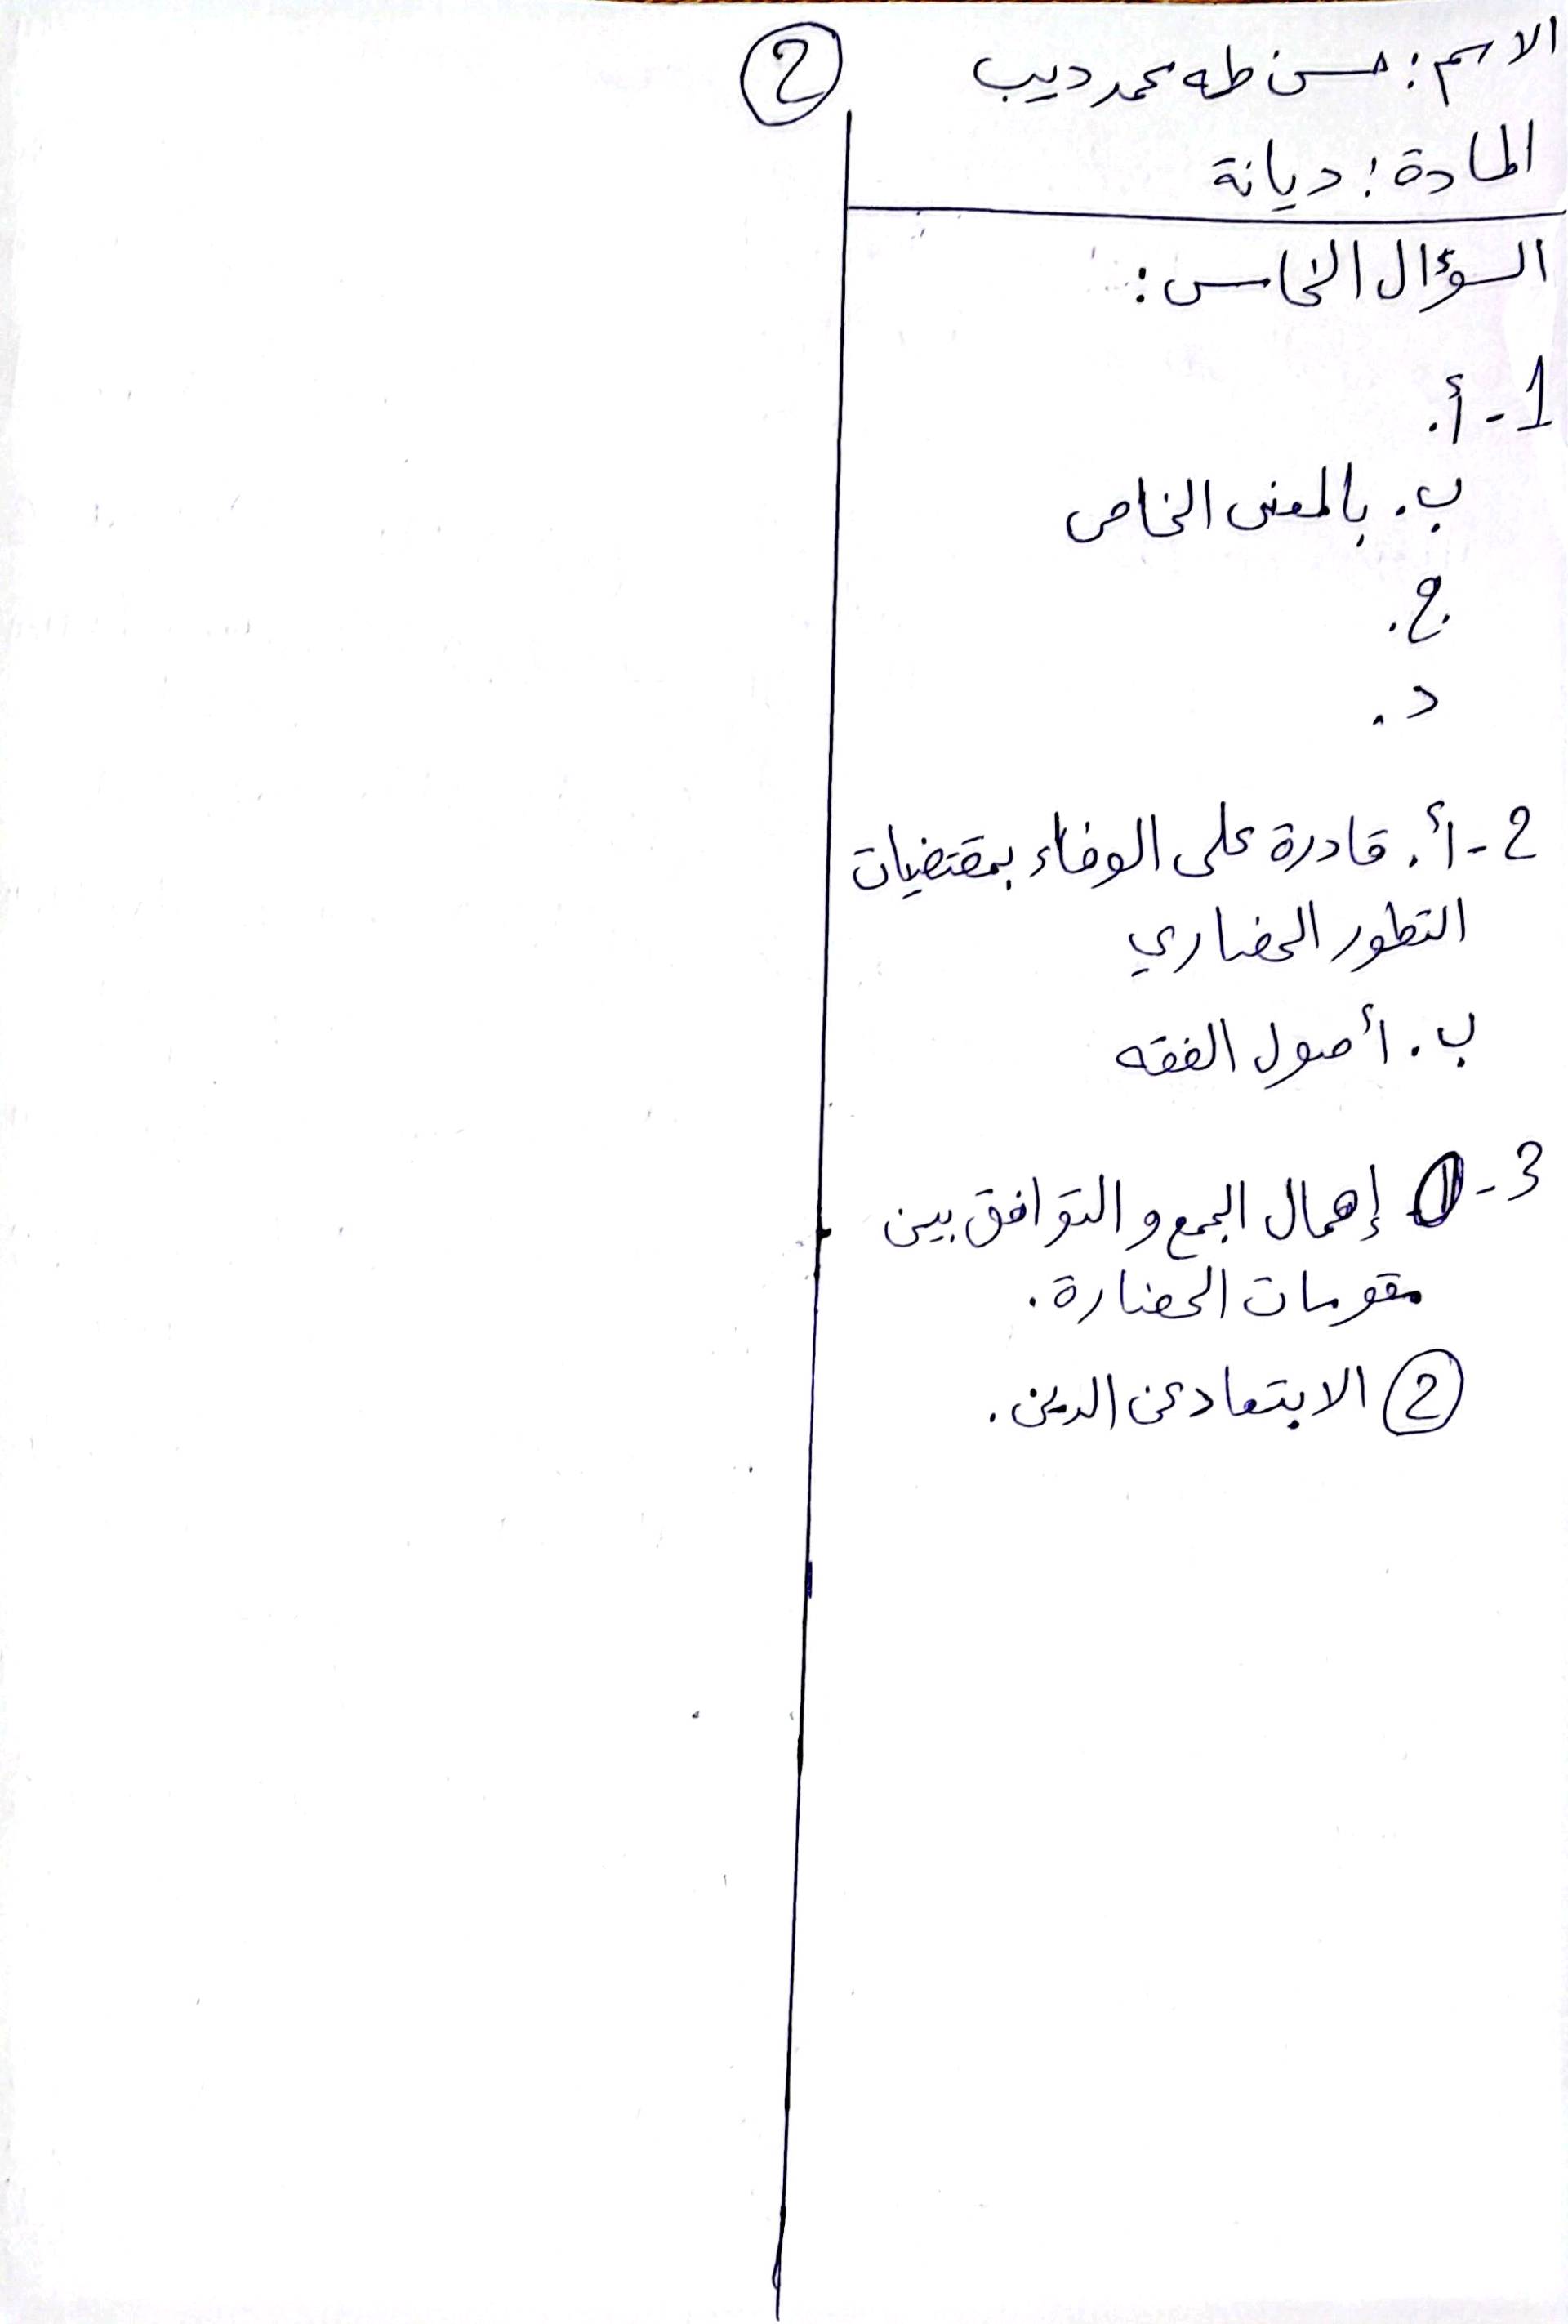 الاسم: حسن طه محمد ديب
2
المادة: ديانة
السؤال الخامس:
1- أ.
ب. بالمعنى الخاص
ج.
د.
2- أ. قادرة على الوفاء بمقتضيات
التطور الحضاري
ب. أصول الفقه
3- 1 إهمال الجمع و التوافق بين
مقومات الحضارة.
2 الابتعاد عن الدين.